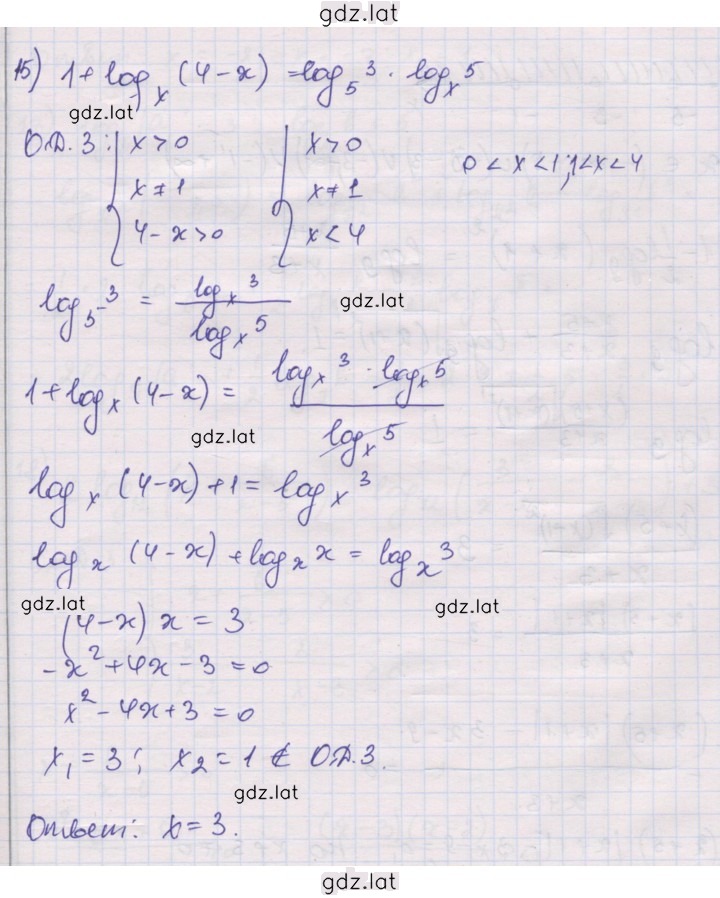 gdz.lat
15) 1 + log_x (4 - x) = log_5 3 · log_x 5
gdz.lat
О.Д.З: { x > 0 { x > 0 0 < x < 1; 1 < x < 4
x ≠ 1 x ≠ 1
4 - x > 0 x < 4
log_5 3 = log_x 3 / log_x 5
gdz.lat
1 + log_x (4 - x) = log_x 3 · log_x 5 / log_x 5
gdz.lat
log_x (4 - x) + 1 = log_x 3
log_x (4 - x) + log_x x = log_x 3
gdz.lat gdz.lat
(4 - x) x = 3
-x² + 4x - 3 = 0
x² - 4x + 3 = 0
x₁ = 3; x₂ = 1 ∉ О.Д.З.
gdz.lat
Ответ: x = 3.
gdz.lat